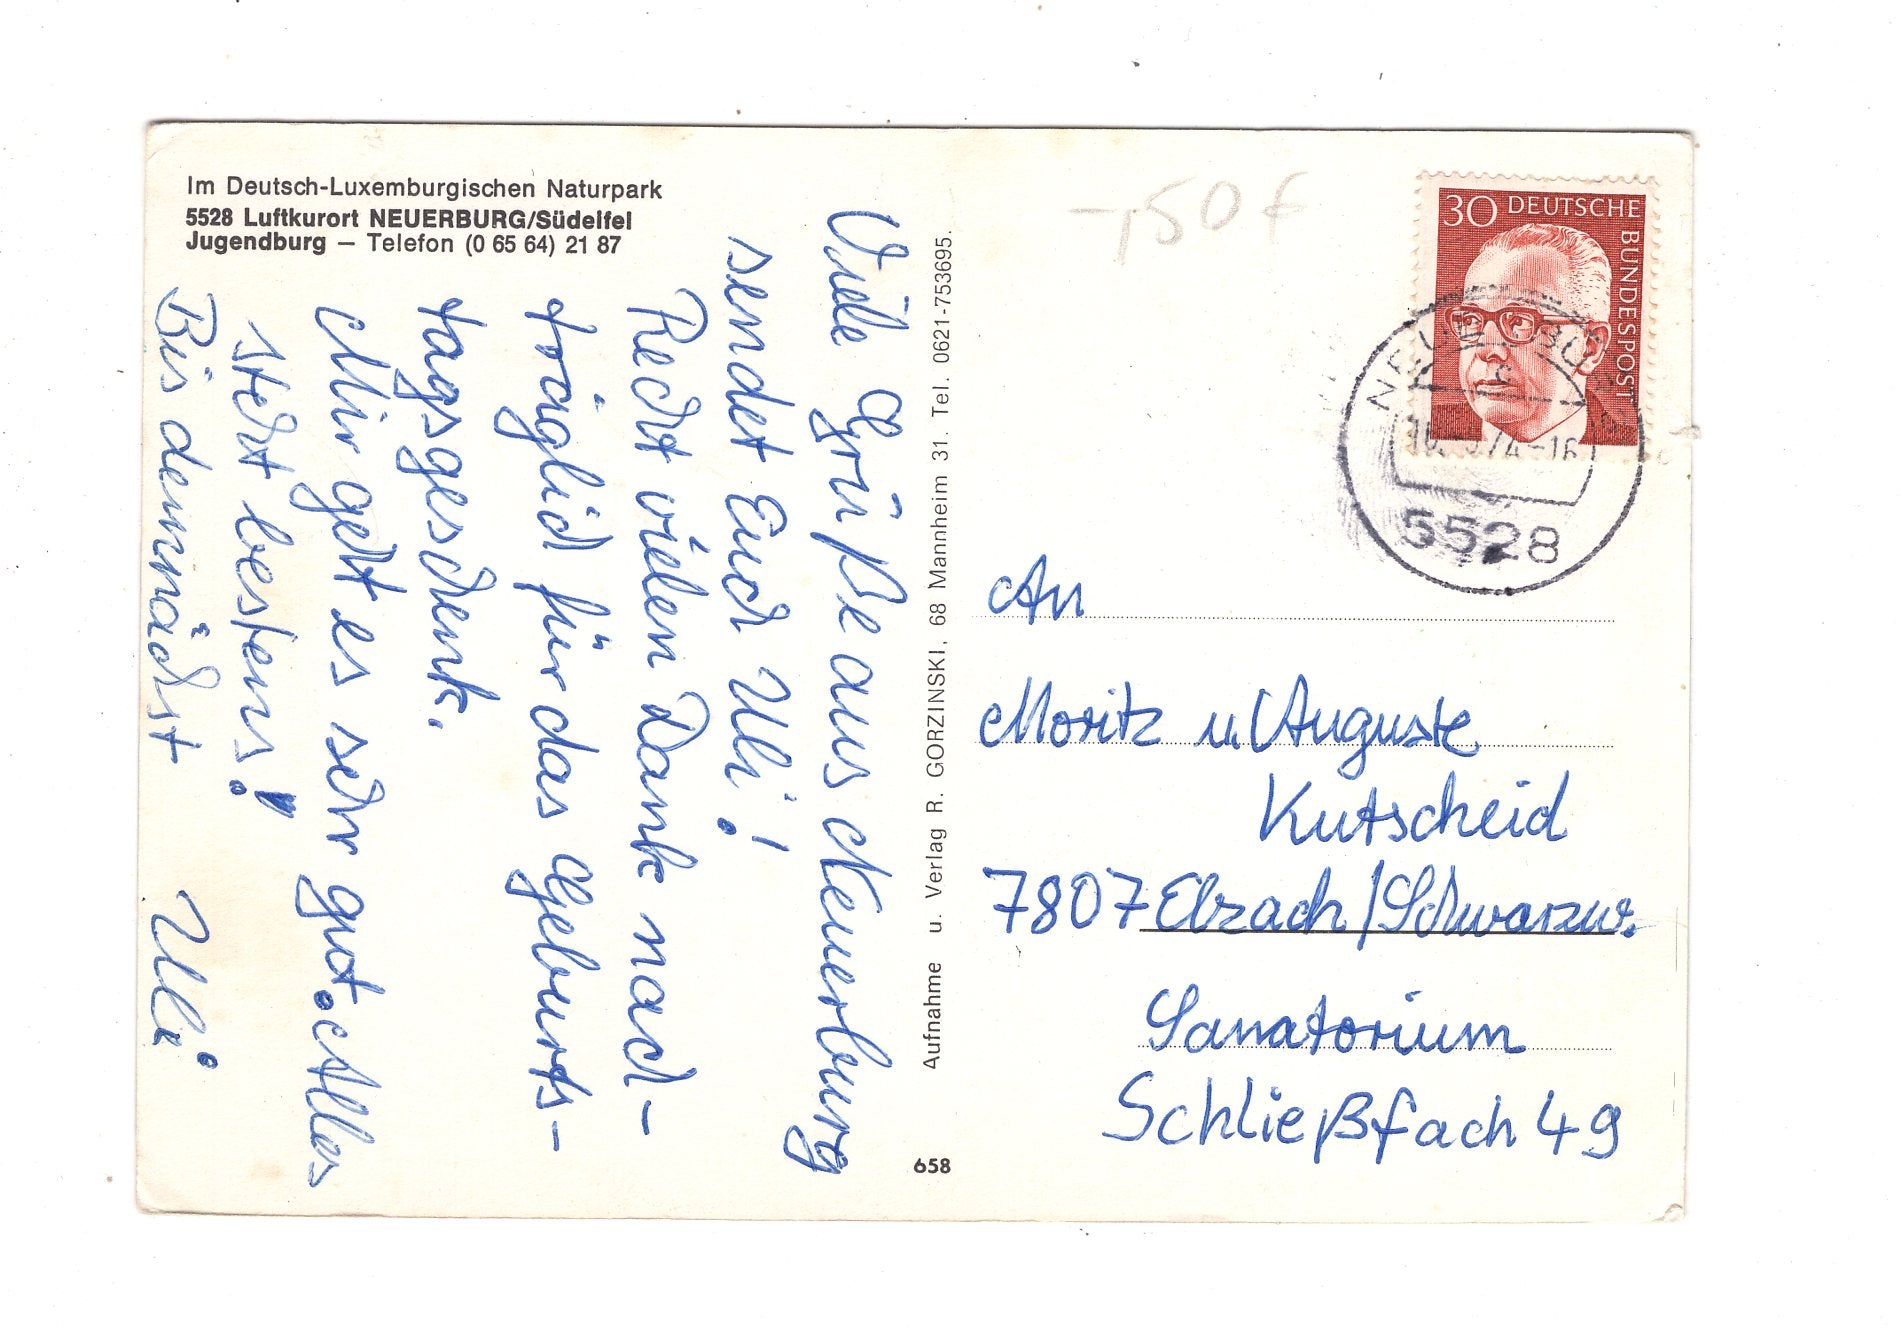 Im Deutsch-Luxemburgischen Naturpark
5528 Luftkurort NEUERBURG/Südeifel
Jugendburg — Telefon (0 65 64) 21 87
Viele Grüße aus Neuerburg
sendet Euch Uli!
Recht vielen Dank nach-
träglich für das Geburts-
tagsgeschenk.
Mir geht es sehr gut. Alles
steht bestens!
Bis demnächst Uli
Aufnahme u. Verlag R. GORZINSKI, 68 Mannheim 31. Tel. 0621-753695.
658
-,50 f
30 DEUTSCHE
BUNDESPOST
74-16
5528
An
Moritz u. Auguste
Kutscheid
7807 Elzach/Schwarzw.
Sanatorium
Schließfach 49